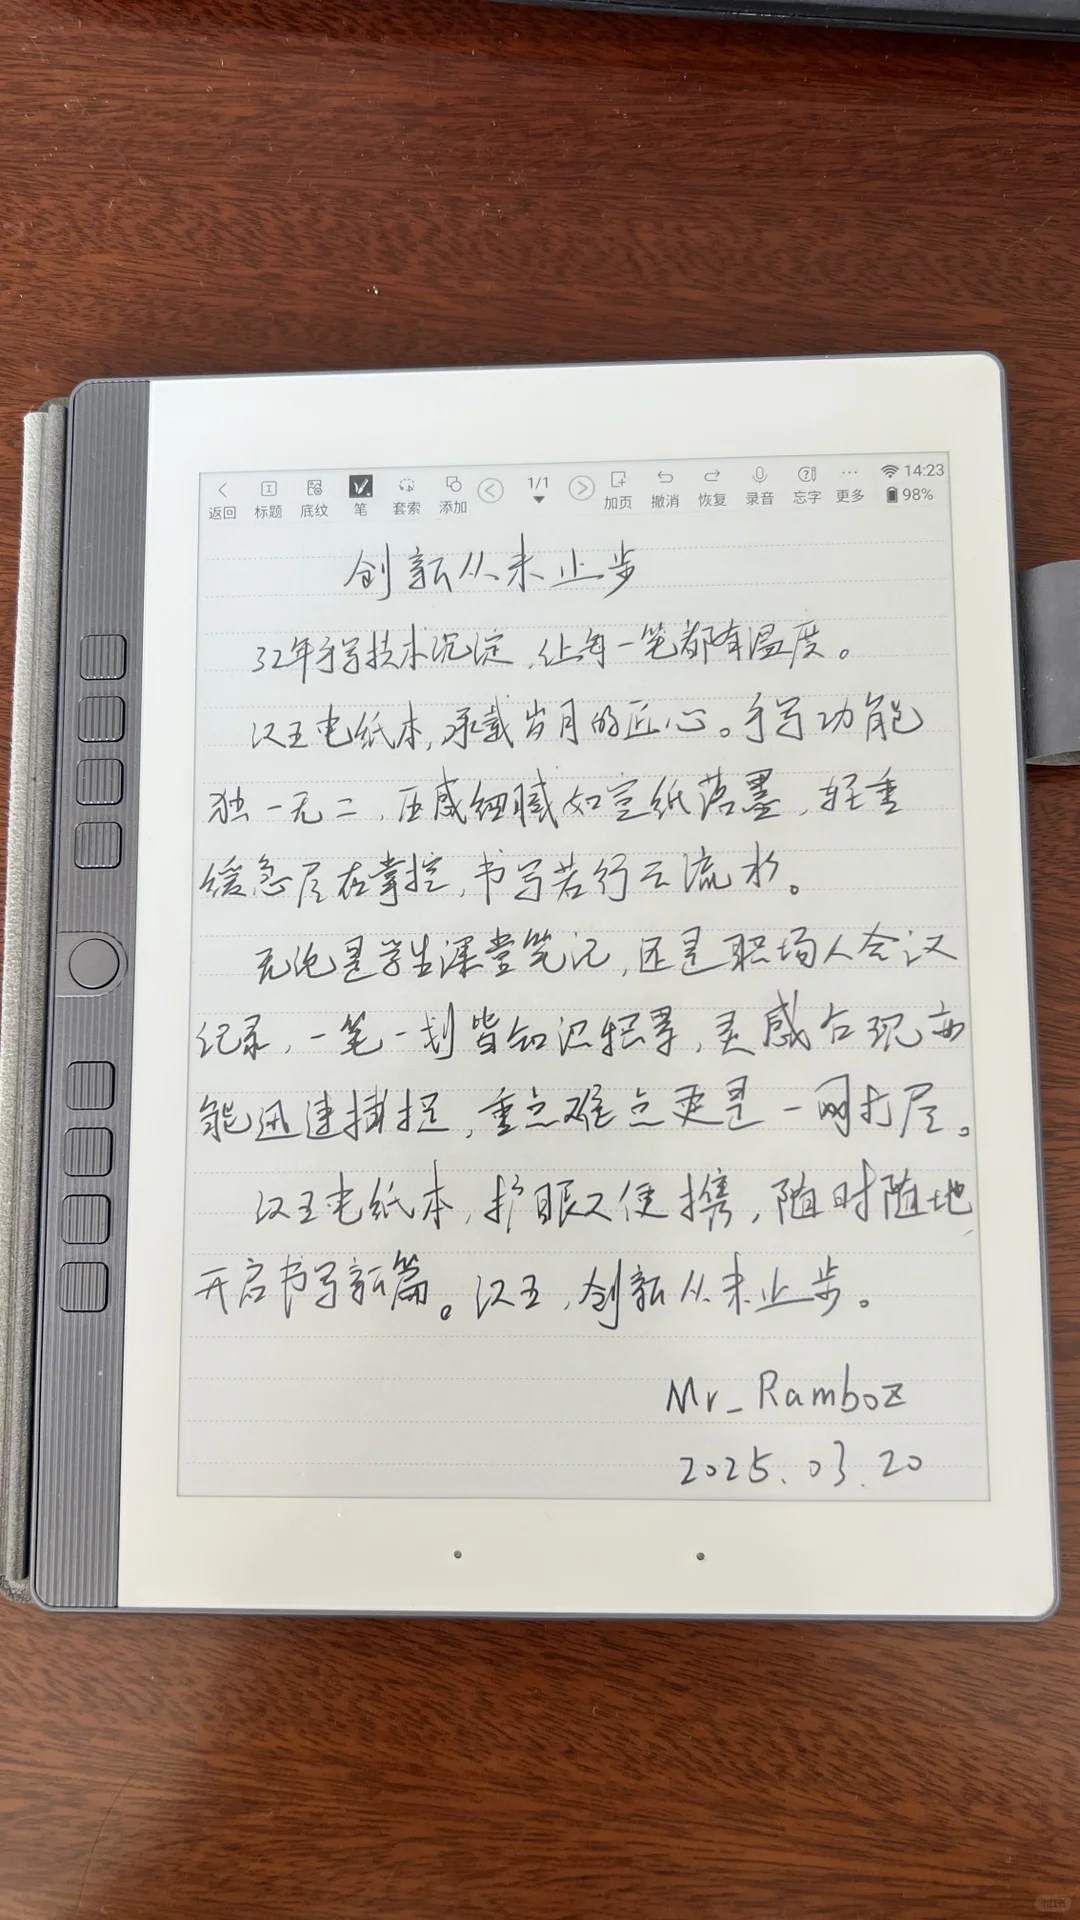 返回 标题 底纹 笔 套索 添加 1/1 加页 撤消 恢复 录音 忘字 更多 14:23 98%
创新从未止步
32年手写技术沉淀,让每一笔都有温度。
汉王电纸本,承载岁月的匠心。手写功能
独一无二,压感细腻如宣纸落墨,轻重
缓急尽在掌控,书写若行云流水。
无论是学生课堂笔记,还是职场人会议
纪录,一笔一划皆知识积累,灵感乍现亦
能迅速捕捉,重点难点更是一网打尽。
汉王电纸本,护眼又便携,随时随地,
开启书写新篇。汉王,创新从未止步。
Mr_Ramboz
2025.03.20